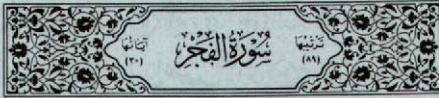 ترتيبها
(٨٩)
سُورَةُ الفَجْرِ
آياتها
(٣٠)